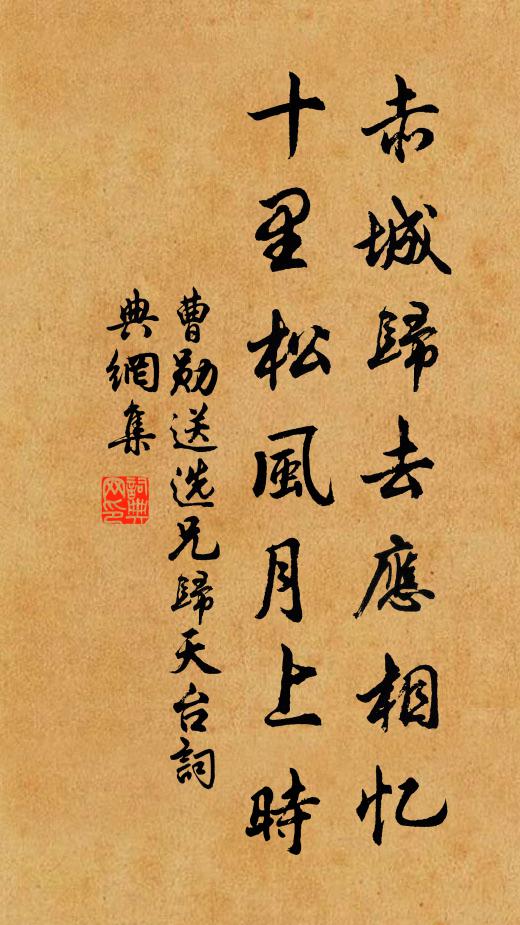 赤城歸去應相忆
十里松風月上時
曹勛送选兄歸天台詞
典網集
詞典网印